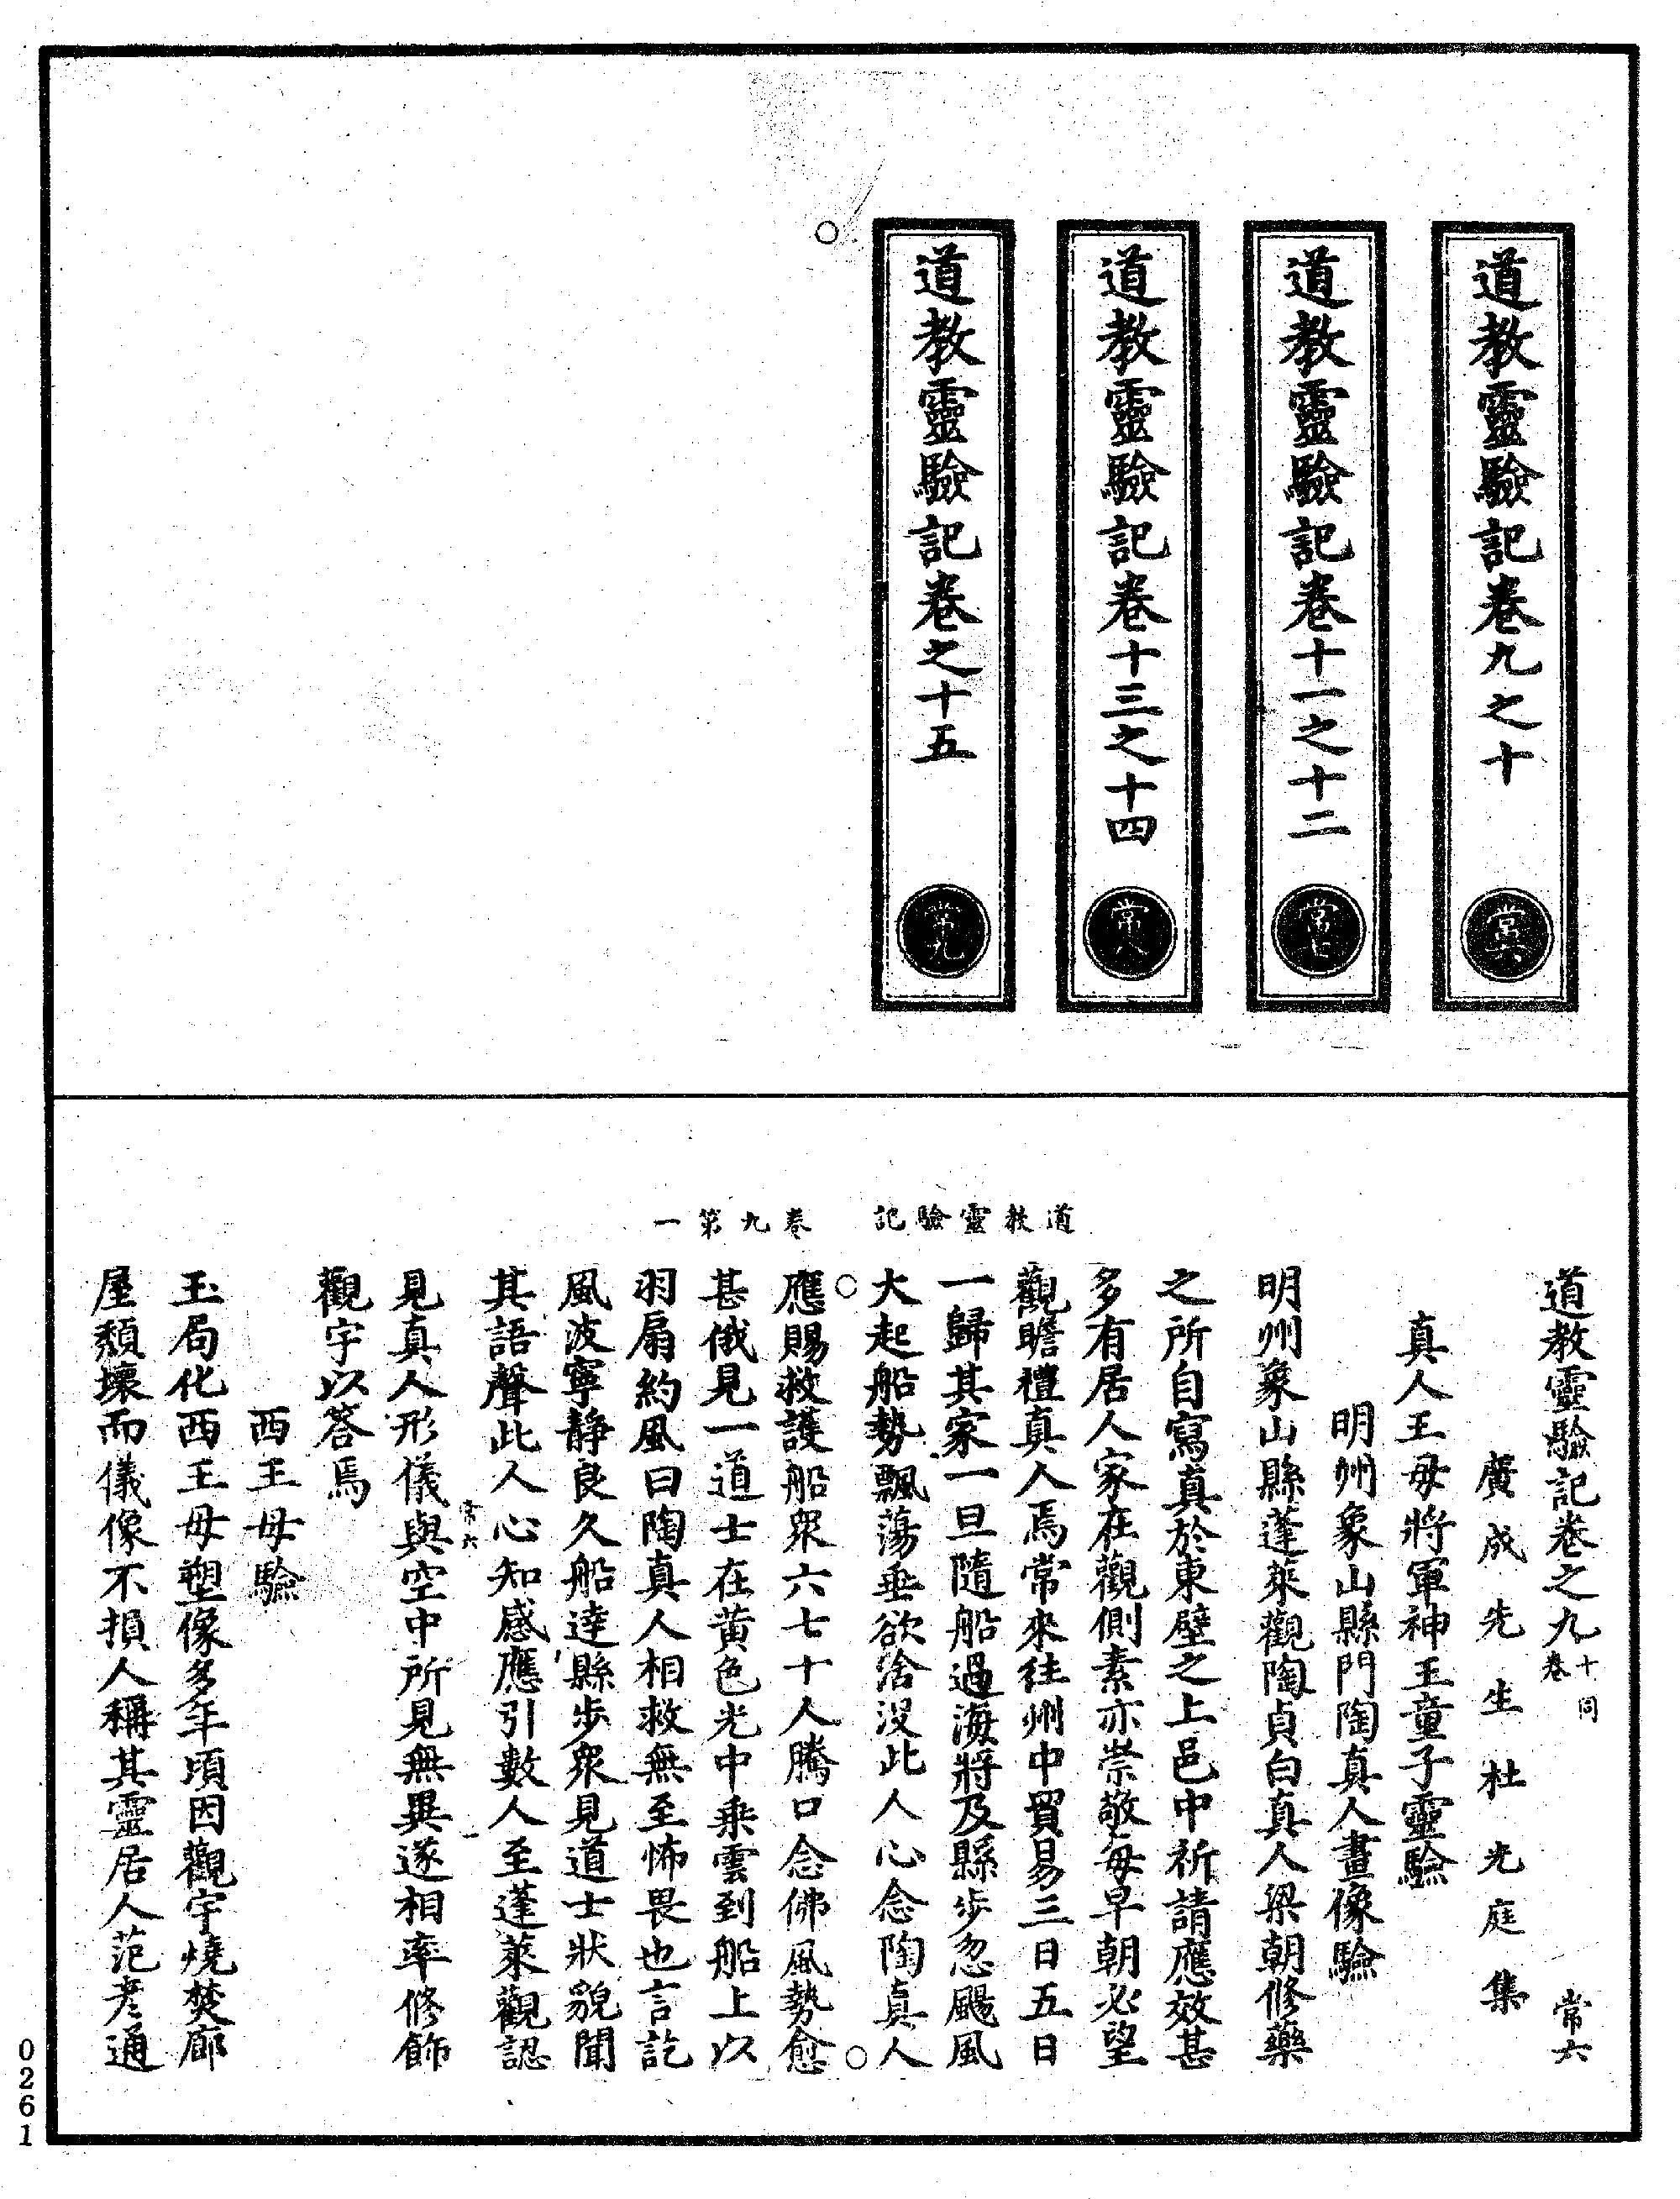 道教靈驗記卷九之十
常六
道教靈驗記卷十一之十二
常七
道教靈驗記卷十三之十四
常八
道教靈驗記卷之十五
常九
道教靈驗記 卷九第一
道教靈驗記卷之九 十卷同 常六
廣成先生杜光庭集
真人王母將軍神王童子靈驗
明州象山縣門陶真人畫像驗
明州象山縣蓬萊觀陶貞白真人梁朝修藥
之所自寫真於東壁之上邑中祈請應效甚
多有居人家在觀側素亦崇敬每早朝必望
觀瞻禮真人焉常來往州中貿易三日五日
一歸其家一旦隨船過海將及縣步忽颶風
大起船勢飄蕩垂欲淪沒此人心念陶真人
應賜救護船眾六七十人騰口念佛風勢愈
甚俄見一道士在黃色光中乘雲到船上以
羽扇約風曰陶真人相救無至怖畏也言訖
風波寧靜良久船達縣步眾見道士狀貌聞
其語聲此人心知感應引數人至蓬萊觀認
常六 一
見真人形儀與空中所見無異遂相率修飾
觀宇以答焉
西王母驗
玉局化西王母塑像多年頃因觀宇燒焚廊
屋頹壞而儀像不損人稱其靈居人范彥通
0261